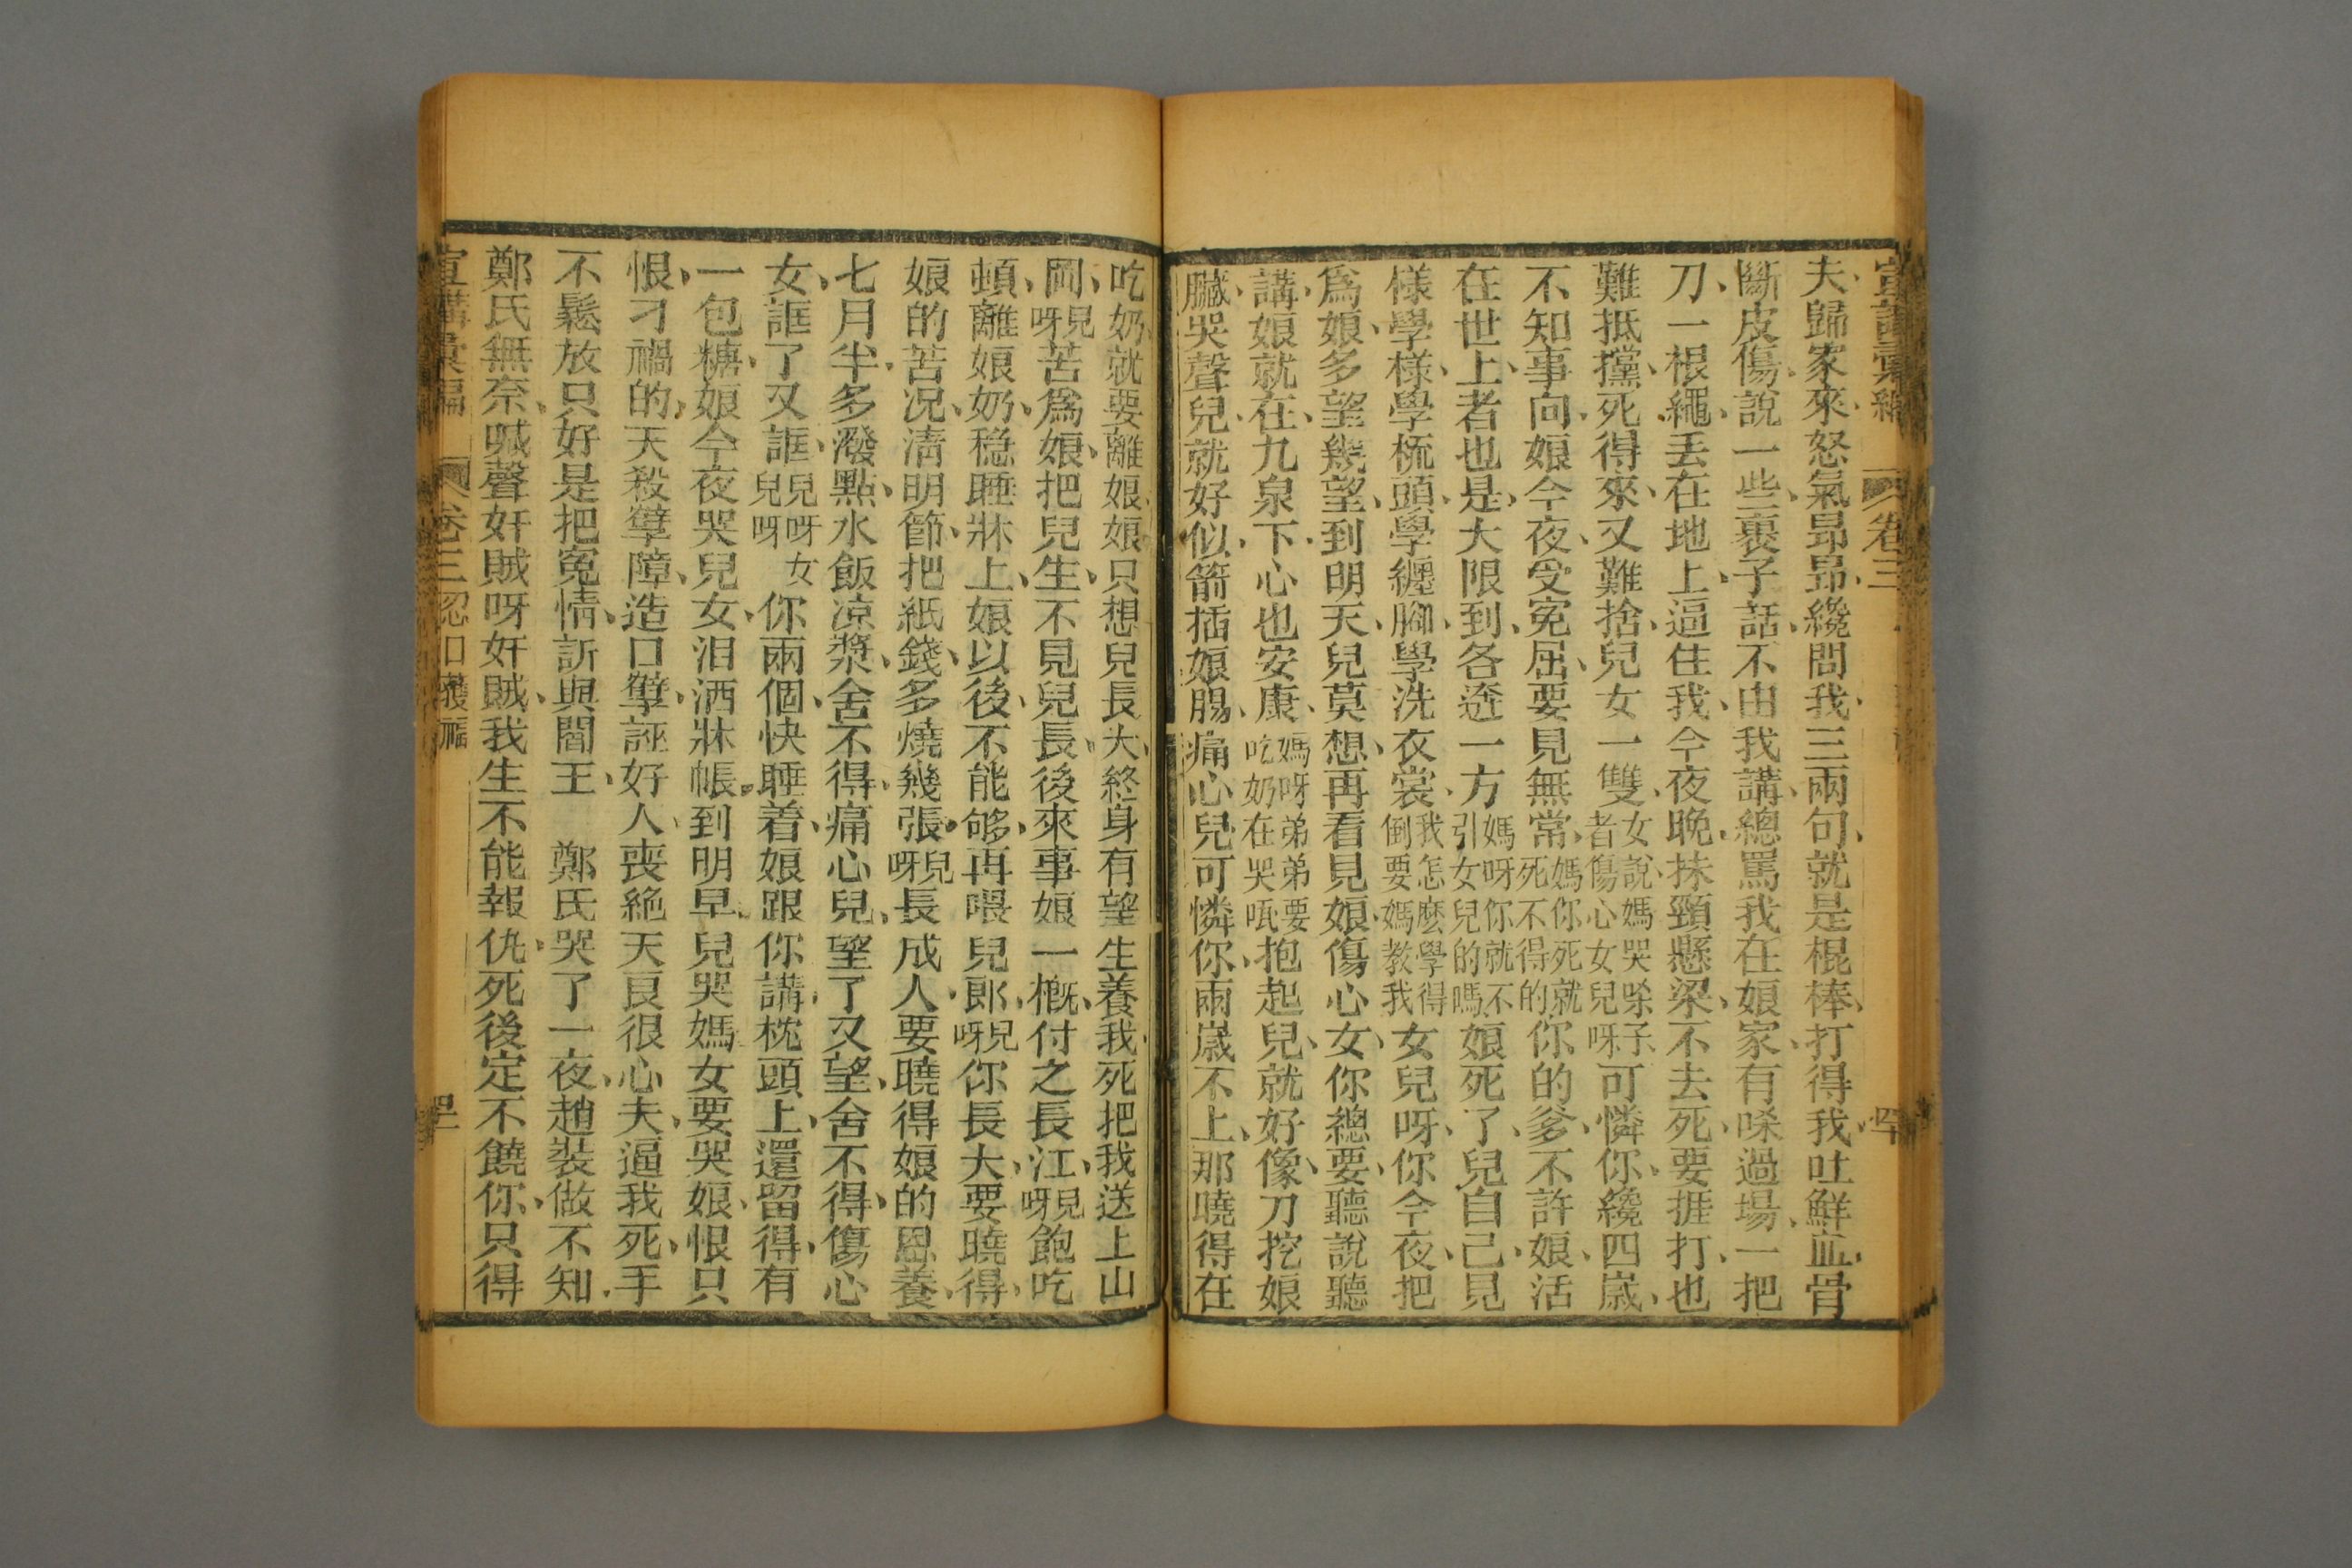 宣講彙編 卷三 四十
夫、歸家來、怒氣昂昂、纔問我、三兩句、就是棍棒、打得我、吐鮮血、骨
斷皮傷、說一些、裹子話、不由我講、總罵我、在娘家、有㗇過場、一把
刀、一根繩、丟在地上、逼住我、今夜晚、抹頸懸梁、不去死、要捱打、也
難抵攩、死得來、又難捨、兒女一雙、女說、媽哭㗇子、者傷心女兒呀可憐你、纔四歲、
不知事、向娘今夜、受冤屈、要見無常、媽你死就死不得的你的爹、不許娘、活
在世上、者也是、大限到、各逩一方媽呀你就不引女兒的嗎娘死了、兒自己、見
樣學樣、學梳頭、學纏腳、學洗衣裳、我怎麼學得倒要媽教我女兒呀、你今夜、把
爲娘、多望幾望、到明天、兒莫想、再看見娘、傷心女、你總要、聽說聽
講、娘就在、九泉下、心也安康、媽呀弟弟要吃奶在哭哌抱起兒、就好像、刀挖娘
臟、哭聲兒、就好似、箭插娘腸、痛心兒、可憐你、兩歲不上、那曉得、在
吃奶、就要離娘、娘只想、兒長大、終身有望、生養我、死把我、送上山
岡、兒呀苦爲娘、把兒生、不見兒長、後來事、娘一槪、付之長江、兒呀飽吃
頓、離娘奶、穩睡牀上、娘以後、不能够、再喂兒郎、兒呀你長大、要曉得、
娘的苦况、淸明節、把紙錢、多燒幾張、兒呀長成人、要曉得、娘的恩養、
七月半、多潑點、水飯凉漿、舍不得、痛心兒、望了又望、舍不得、傷心
女、誆了又誆、兒呀女兒呀你兩個、快睡着、娘跟你講、枕頭上、還留得、有
一包糖、娘今夜、哭兒女、泪洒牀帳、到明早、兒哭媽、女要哭娘、恨只
恨、刁禍的、天殺孽障、造口孽、誣好人、喪絕天良、很心夫、逼我死、手
不鬆放、只好是、把寃情、訴與閻王、 鄭氏哭了一夜、趙裝做不知、
鄭氏無奈、喊聲奸賊呀奸賊、我生不能報仇、死後定不饒你、只得
宣講彙編 卷三 忍口獲福